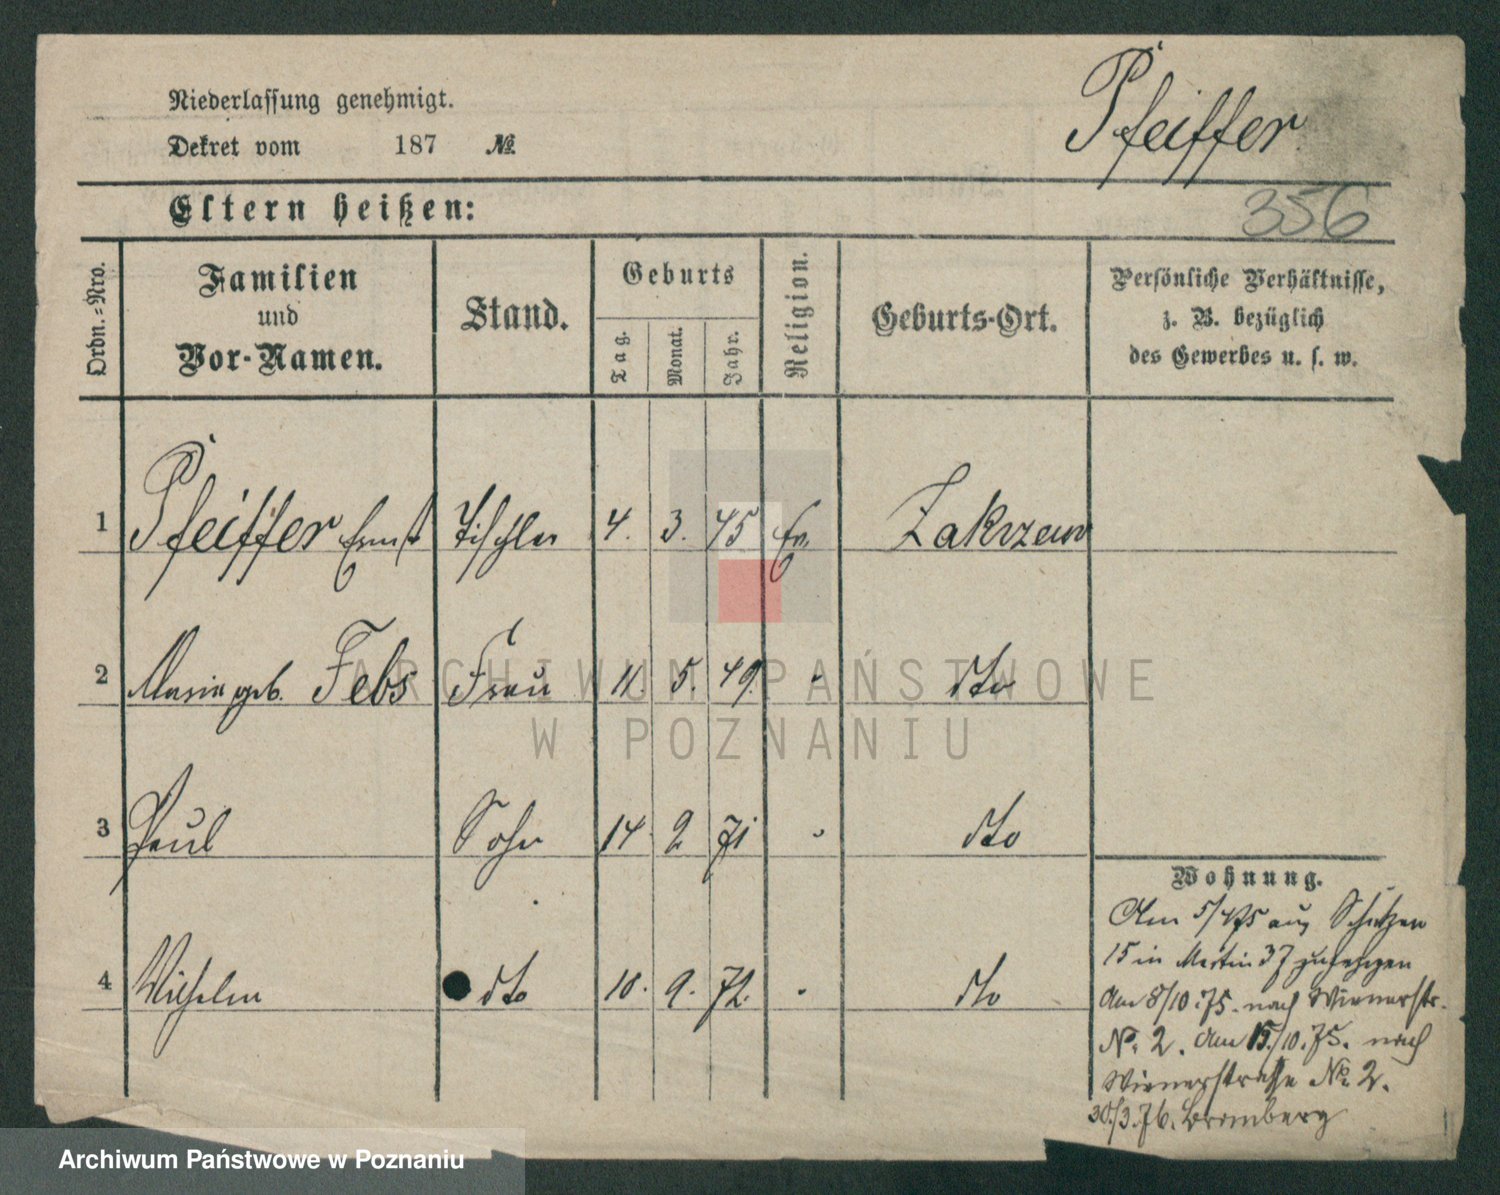 Niederlassung genehmigt.
Dekret vom 187 №
Pfeiffer
Eltern heißen:
356
Ordn.-Nro.
Familien
und
Vor-Namen.
Stand.
Geburts
Tag.
Monat.
Jahr.
Religion.
Geburts-Ort.
Persönliche Verhältnisse,
z. B. bezüglich
des Gewerbes u. s. w.
1 Pfeiffer Ernst Tischler 4. 3. 45 Ev. Zakrzewo
2 Maria geb. Febs Frau 11. 5. 49. " dto
3 Paul Sohn 14. 2 71 " dto
4 Wilhelm dto 10. 9. 72. " dto
Wohnung.
Am 5/4 75 aus Schützen
15 in Martin 37 zugezogen
Am 8/10.75. nach Wienerstr.
№ 2. Am 15./10.75. nach
Wienerstrasse № 2.
30./3.76. Bromberg
ARCHIWUM PAŃSTWOWE
W POZNANIU
Archiwum Państwowe w Poznaniu